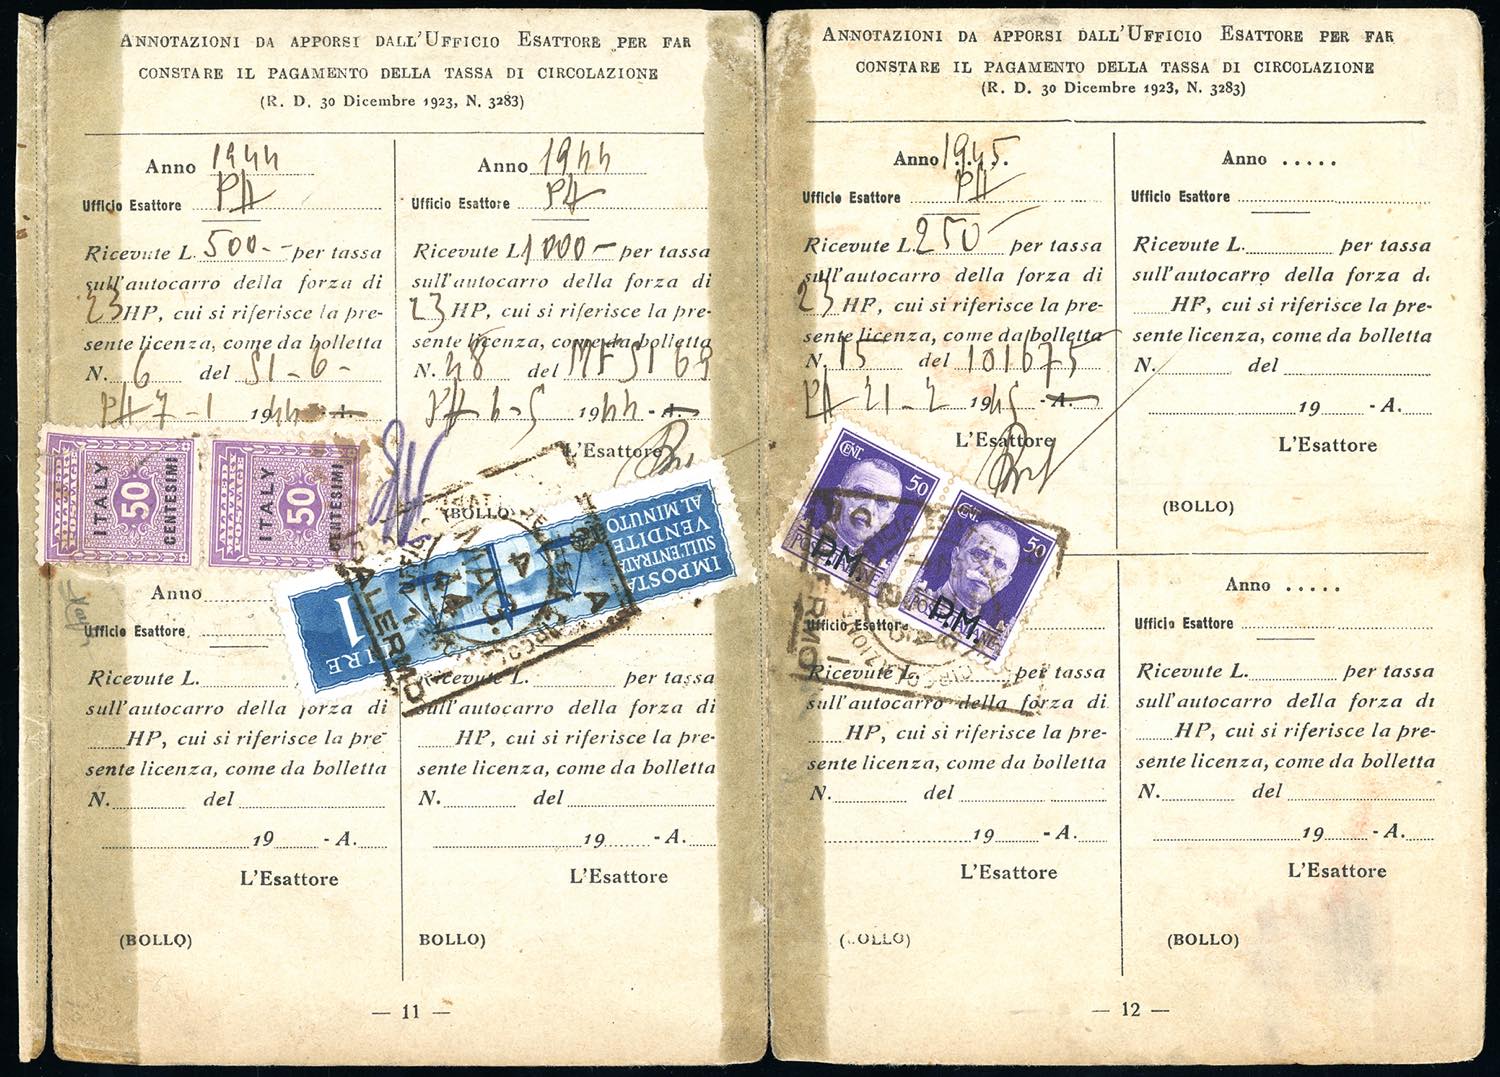 ANNOTAZIONI DA APPORSI DALL'UFFICIO ESATTORE PER FAR
CONSTARE IL PAGAMENTO DELLA TASSA DI CIRCOLAZIONE
(R. D. 30 Dicembre 1923, N. 3283)
Anno 1944
Ufficio Esattore PA
Ricevute L. 500.- per tassa
sull'autocarro della forza di
23 HP, cui si riferisce la pre-
sente licenza, come da bolletta
N. 6 del 51-6-
PA 7-1 1944 - A.
ALLIED MILITARY POSTAGE
ITALY
50
CENTESIMI
ALLIED MILITARY POSTAGE
ITALY
50
CENTESIMI
Anno 1944
Ufficio Esattore PA
Ricevute L. 1000- per tassa
sull'autocarro della forza di
23 HP, cui si riferisce la pre-
sente licenza, come da bolletta
N. 48 del
PA 1944 - A.
L'Esattore
(BOLLO)
IMPOSTA
SULL'ENTRATA
VENDITE
AL MINUTO
1
LIRE
PALERMO
Anno
Ufficio Esattore
Ricevute L. per tassa
sull'autocarro della forza di
HP, cui si riferisce la pre-
sente licenza, come da bolletta
N. del
19 - A.
L'Esattore
(BOLLO)
Ricevute L. per tassa
sull'autocarro della forza di
HP, cui si riferisce la pre-
sente licenza, come da bolletta
N. del
19 - A.
L'Esattore
BOLLO)
— 11 —
ANNOTAZIONI DA APPORSI DALL'UFFICIO ESATTORE PER FAR
CONSTARE IL PAGAMENTO DELLA TASSA DI CIRCOLAZIONE
(R. D. 30 Dicembre 1923, N. 3283)
Anno 1945.
Ufficio Esattore PA
Ricevute L. 250- per tassa
sull'autocarro della forza di
23 HP, cui si riferisce la pre-
sente licenza, come da bolletta
N. 15 del 101675
PA 21-2 1945 - A.
L'Esattore
CENT. 50
P.M.
CENT. 50
P.M.
PALERMO
Anno .....
Ufficio Esattore
Ricevute L. per tassa
sull'autocarro della forza di
HP, cui si riferisce la pre-
sente licenza, come da bolletta
N. del
19 - A.
L'Esattore
(BOLLO)
Ufficio Esattore
Ricevute L. per tassa
sull'autocarro della forza di
HP, cui si riferisce la pre-
sente licenza, come da bolletta
N. del
19 - A.
L'Esattore
(BOLLO)
Anno .....
Ufficio Esattore
Ricevute L. per tassa
sull'autocarro della forza di
HP, cui si riferisce la pre-
sente licenza, come da bolletta
N. del
19 - A.
L'Esattore
(BOLLO)
— 12 —